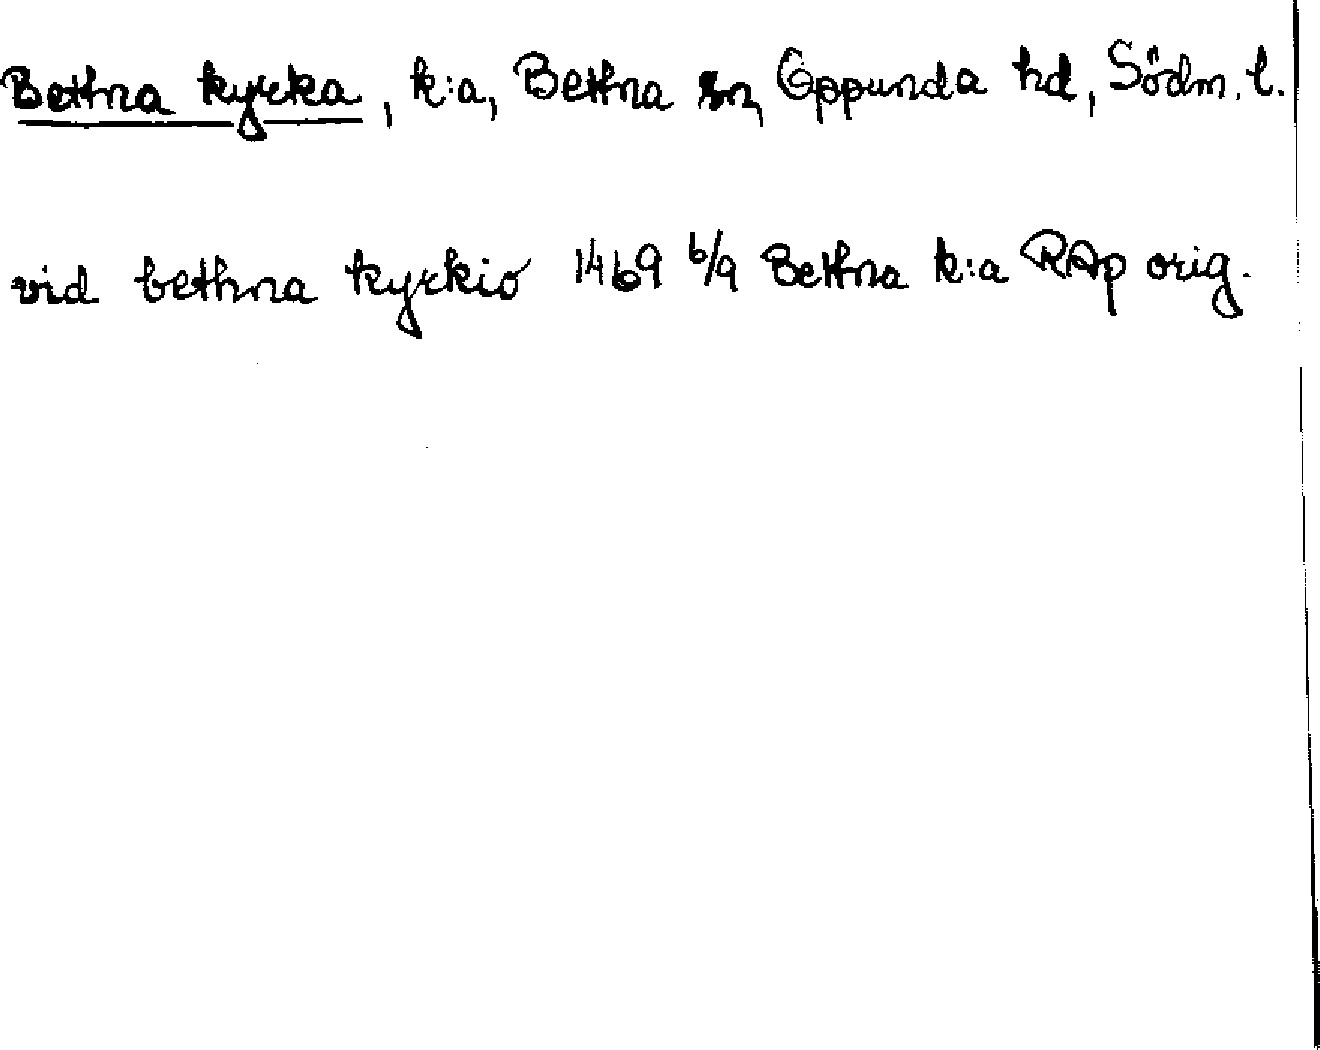 Bettna kyrka, k:a, Bettna sn, Oppunda hd, Södm. l.
vid bethna kyrkio 1469 6/9 Bettna k:a RAp orig.